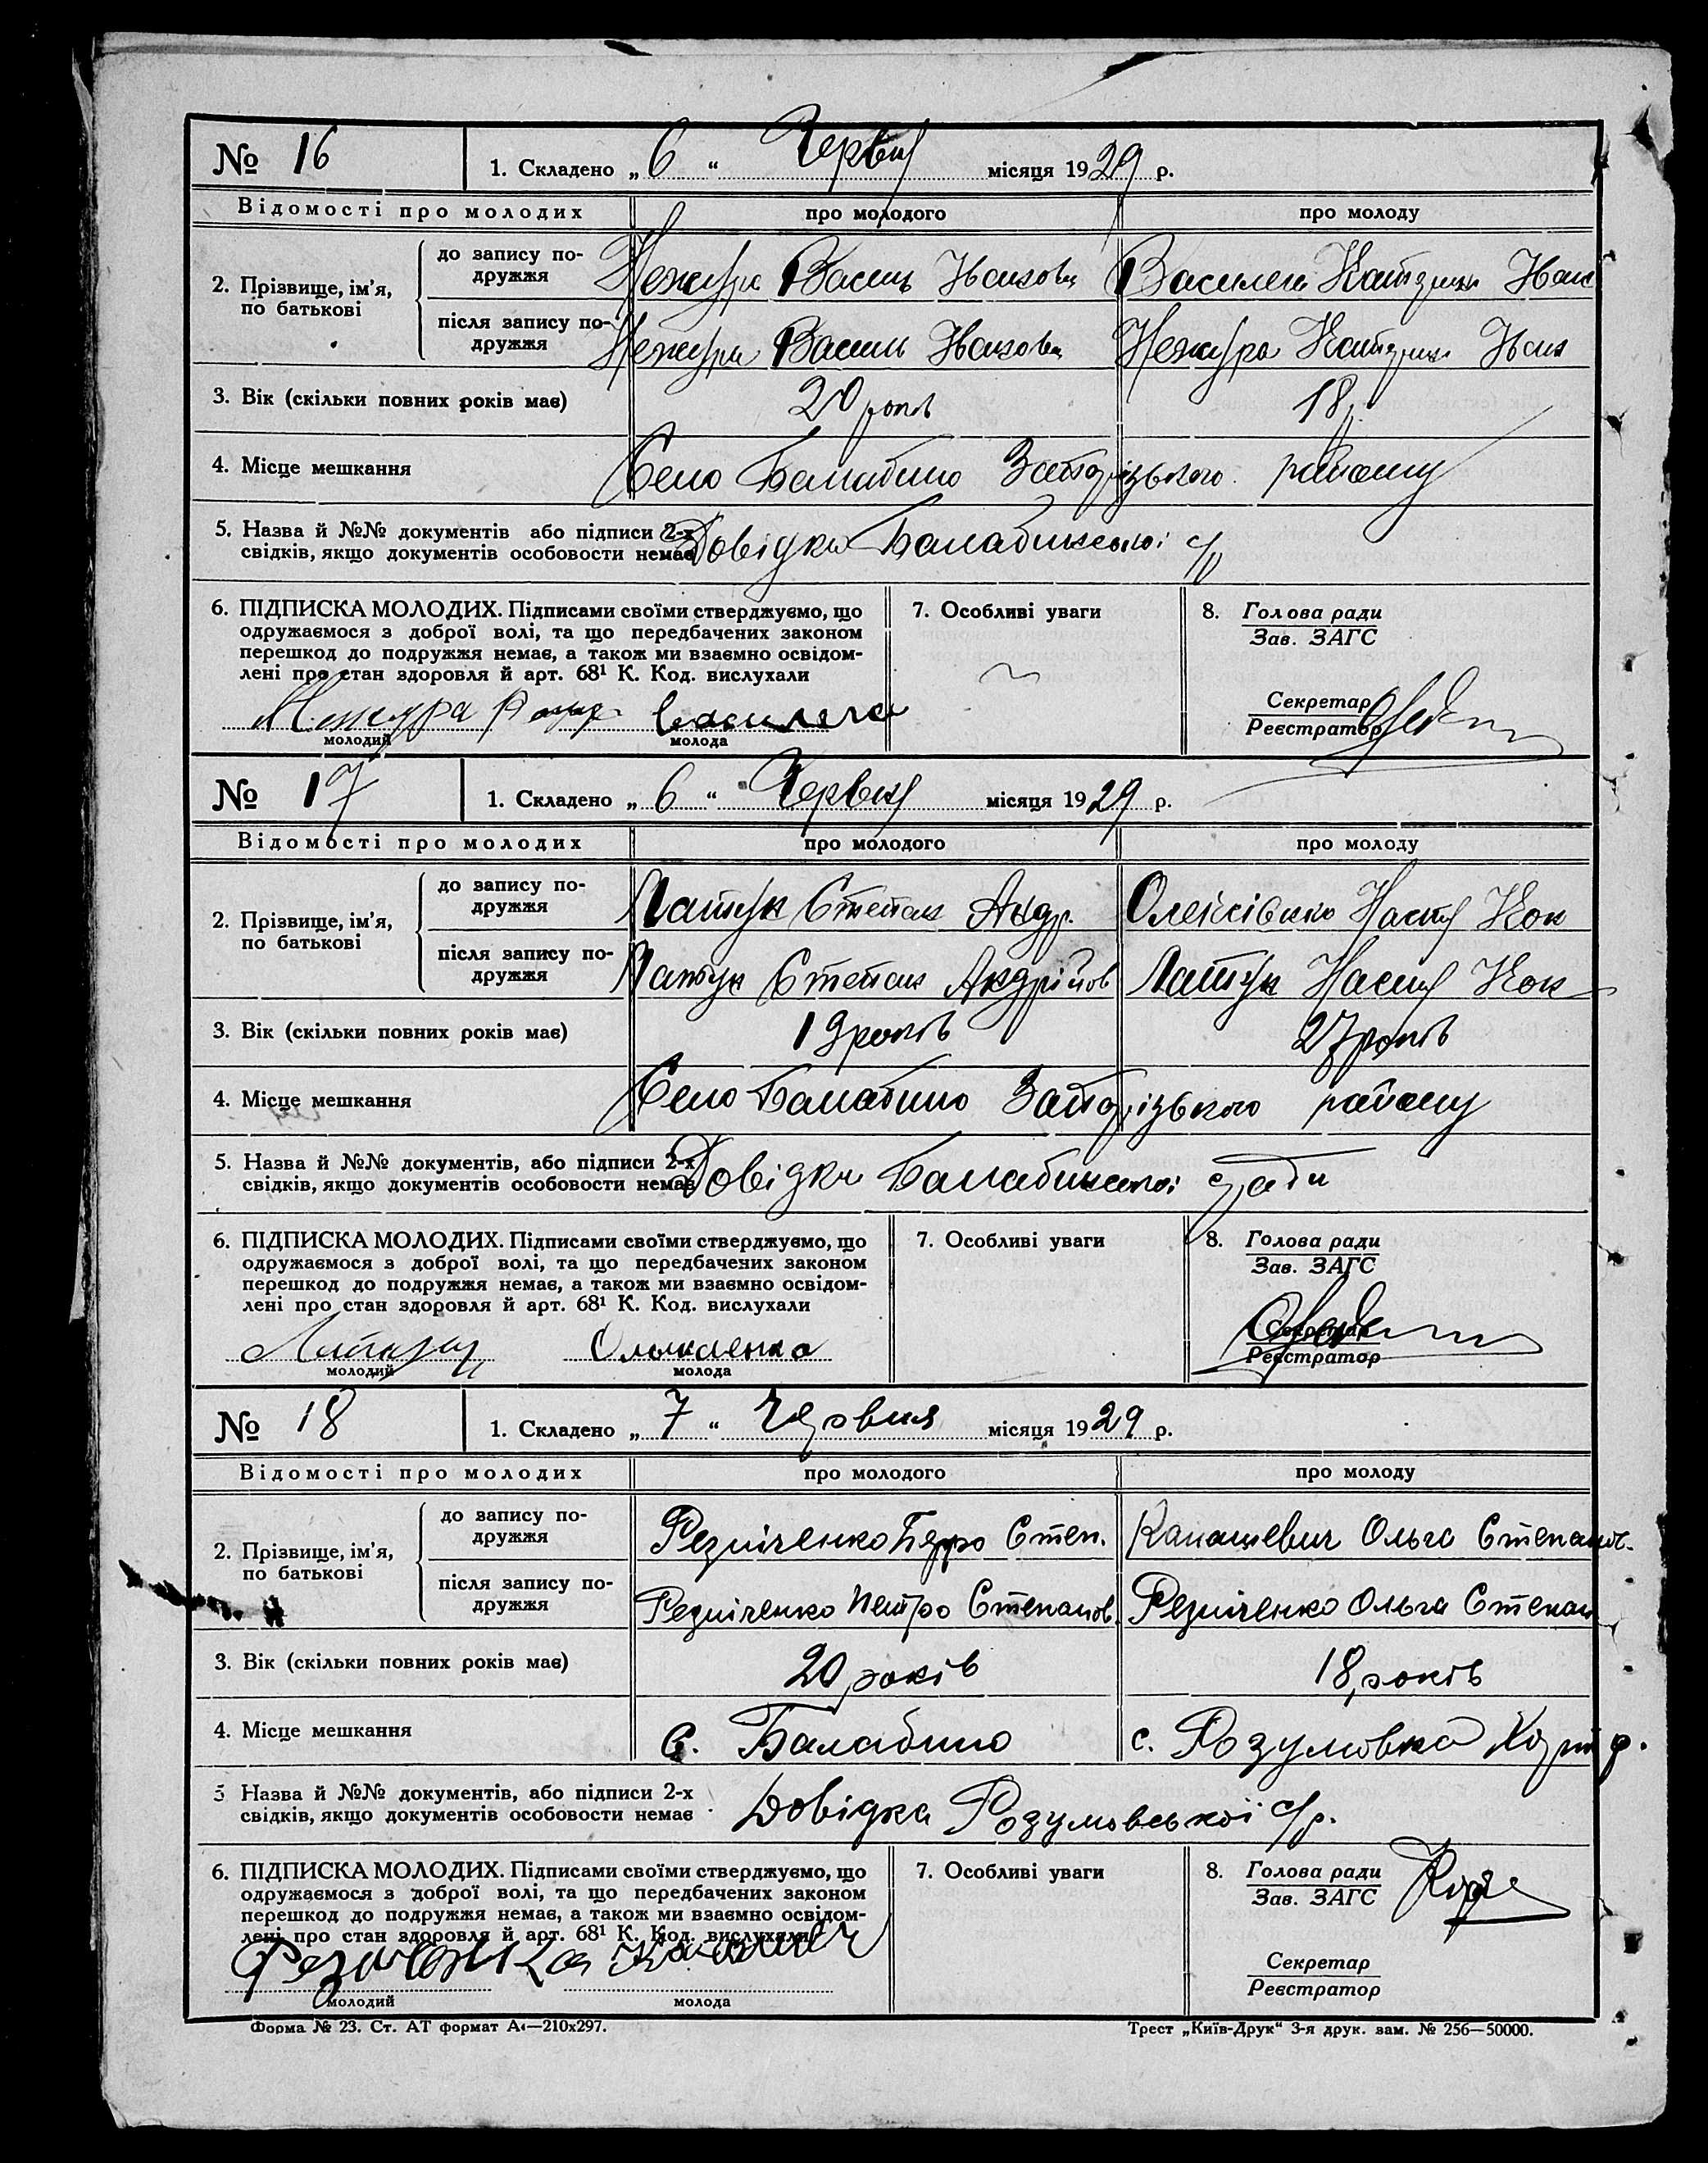 № 16 1. Складено „ 6 “ Червня місяця 1929 р.
Відомості про молодих про молодого про молоду
2. Прізвище, ім’я, по батькові
до запису подружжя Василь Іванович Іван
після запису подружжя Василь Іванович Іван
3. Вік (скільки повних років має) 20 років 18 р.
4. Місце мешкання Село Балабино Запорізького району
5. Назва й №№ документів або підписи 2-х
свідків, якщо документів особовости немає Довідки Балабинської с/р
6. ПІДПИСКА МОЛОДИХ. Підписами своїми стверджуємо, що 7. Особливі уваги 8. Голова ради
одружаємося з доброї волі, та що передбачених законом Зав. ЗАГС
перешкод до подружжя немає, а також ми взаємно освідом-
лені про стан здоровля й арт. 68¹ К. Код. вислухали
Секретар
Реєстратор
молодий молода
№ 17 1. Складено „ 6 “ Червня місяця 1929 р.
Відомості про молодих про молодого про молоду
2. Прізвище, ім’я, по батькові
до запису подружжя Степан Андр.
після запису подружжя Степан Андрійов
3. Вік (скільки повних років має) 19 років 27 років
4. Місце мешкання Село Балабино Запорізького району
5. Назва й №№ документів, або підписи 2-х
свідків, якщо документів особовости немає Довідки Балабинської с/ради
6. ПІДПИСКА МОЛОДИХ. Підписами своїми стверджуємо, що 7. Особливі уваги 8. Голова ради
одружаємося з доброї волі, та що передбачених законом Зав. ЗАГС
перешкод до подружжя немає, а також ми взаємно освідом-
лені про стан здоровля й арт. 68¹ К. Код. вислухали
Секретар
Реєстратор
молодий молода
№ 18 1. Складено „ 7 “ Червня місяця 1929 р.
Відомості про молодих про молодого про молоду
2. Прізвище, ім’я, по батькові
до запису подружжя Резніченко Степ. Ольга Степанов.
після запису подружжя Резніченко Петро Степанов. Резніченко Ольга Степан
3. Вік (скільки повних років має) 20 років 18 років
4. Місце мешкання с. Балабино с. Розумовка
5 Назва й №№ документів, або підписи 2-х
свідків, якщо документів особовости немає Довідка Розумовської с/р.
6. ПІДПИСКА МОЛОДИХ. Підписами своїми стверджуємо, що 7. Особливі уваги 8. Голова ради
одружаємося з доброї волі, та що передбачених законом Зав. ЗАГС
перешкод до подружжя немає, а також ми взаємно освідом-
лені про стан здоровля й арт. 68¹ К. Код. вислухали
Секретар
Реєстратор
молодий молода
Форма № 23. Ст. АТ формат А₄—210х297. Трест „Київ-Друк“ 3-я друк. зам. № 256—50000.